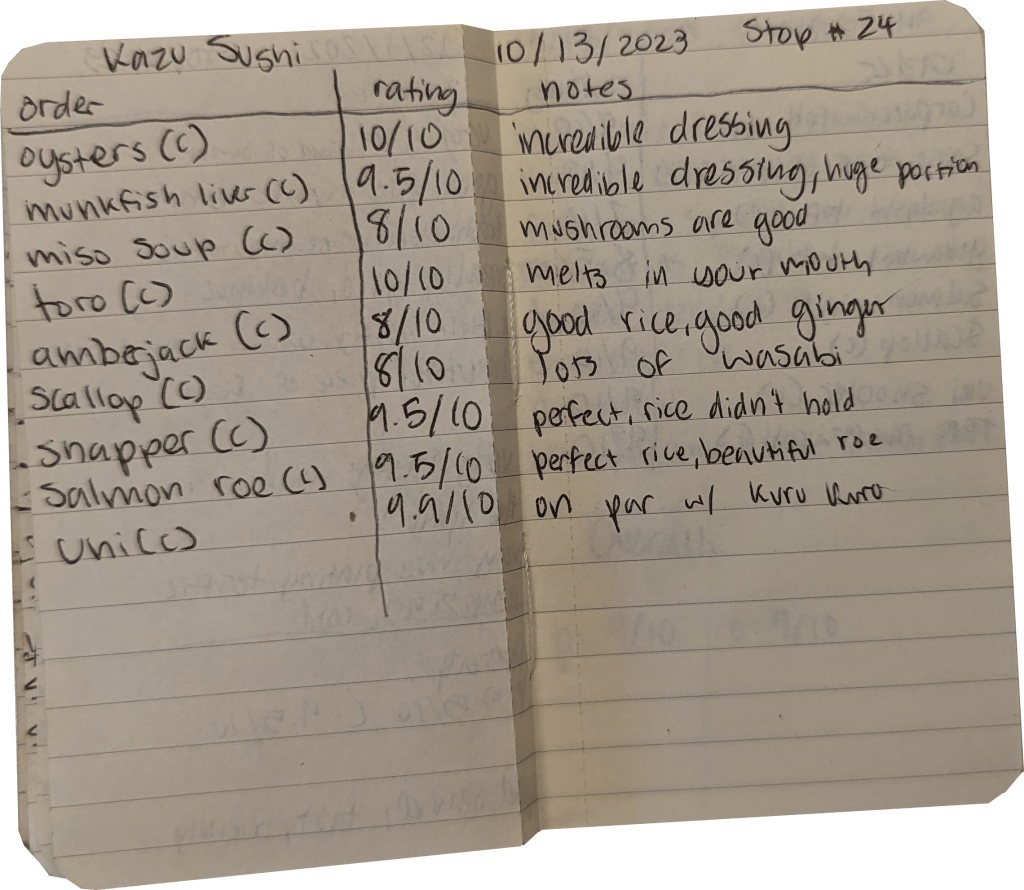 Kazu Sushi 10/13/2023 Stop # 24
order rating notes
oysters (c) 10/10 incredible dressing
munkfish liver (c) 9.5/10 incredible dressing, huge portion
miso soup (c) 8/10 mushrooms are good
toro (c) 10/10 melts in your mouth
amberjack (c) 8/10 good rice, good ginger
scallop (c) 8/10 lots of wasabi
snapper (c) 9.5/10 perfect, rice didn't hold
salmon roe (c) 9.5/10 perfect rice, beautiful roe
uni (c) 9.9/10 on par w/ Kuru Kuro